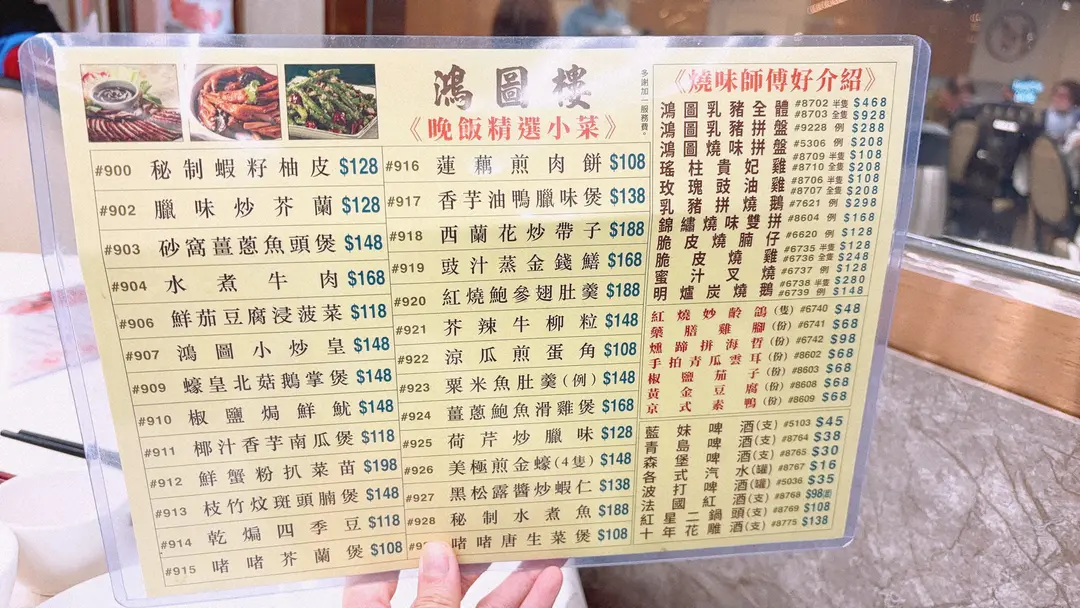 鴻圖樓
《晚飯精選小菜》
多謝加一服務費。
#900 秘制蝦籽柚皮 $128
#902 臘味炒芥蘭 $128
#903 砂窩薑蔥魚頭煲 $148
#904 水煮牛肉 $168
#906 鮮茄豆腐浸菠菜 $118
#907 鴻圖小炒皇 $148
#909 蠔皇北菇鵝掌煲 $148
#910 椒鹽焗鮮魷 $148
#911 椰汁香芋南瓜煲 $118
#912 鮮蟹粉扒菜苗 $198
#913 枝竹炆斑頭腩煲 $148
#914 乾煸四季豆 $118
#915 啫啫芥蘭煲 $108
#916 蓮藕煎肉餅 $108
#917 香芋油鴨臘味煲 $138
#918 西蘭花炒帶子 $188
#919 豉汁蒸金錢鱔 $168
#920 紅燒鮑參翅肚羹 $188
#921 芥辣牛柳粒 $148
#922 涼瓜煎蛋角 $108
#923 粟米魚肚羹(例) $148
#924 薑蔥鮑魚滑雞煲 $168
#925 荷芹炒臘味 $128
#926 美極煎金蠔(4隻) $148
#927 黑松露醬炒蝦仁 $138
#928 秘制水煮魚 $188
啫啫唐生菜煲 $108
《燒味師傅好介紹》
鴻圖乳豬全體 #8702 半隻 $468
#8703 全隻 $928
鴻圖乳豬拼盤 #9228 例 $288
鴻圖燒味拼盤 #5306 例 $208
瑤柱貴妃雞 #8709 半隻 $108
#8710 全隻 $208
玫瑰豉油雞 #8706 半隻 $108
#8707 全隻 $208
乳豬拼燒鵝 #7621 例 $298
錦繡燒味雙拼 #8604 例 $168
脆皮燒腩仔 #6620 例 $128
脆皮燒雞 #6735 半隻 $128
#6736 全隻 $248
蜜汁叉燒 #6737 例 $128
明爐炭燒鵝 #6738 半隻 $280
#6739 例 $148
紅燒妙齡鴿(隻) #6740 $48
藥膳雞腳(份) #6741 $68
燻蹄拼海哲(份) #6742 $98
手拍青瓜雲耳(份) #8602 $68
椒鹽茄子(份) #8603 $68
黃金豆腐(份) #8608 $68
京式素鴨(份) #8609 $68
藍妹啤酒(支) #5103 $45
青島啤酒(支) #8764 $38
森堡啤酒(支) #8765 $30
各式汽水(罐) #8767 $16
波打啤酒(罐) #5036 $35
法國紅酒(支) #8768 $98
紅星二鍋頭(支) #8769 $108
十年花雕酒(支) #8775 $138